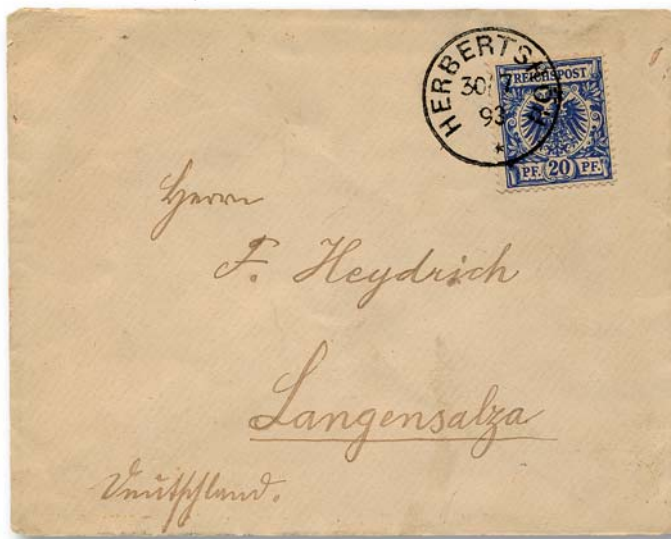 HERBERTSHÖH
30/7
93
*
REICHSPOST
PF. 20 PF.
Herrn
F. Heydrich
Langensalza
Deutschland.